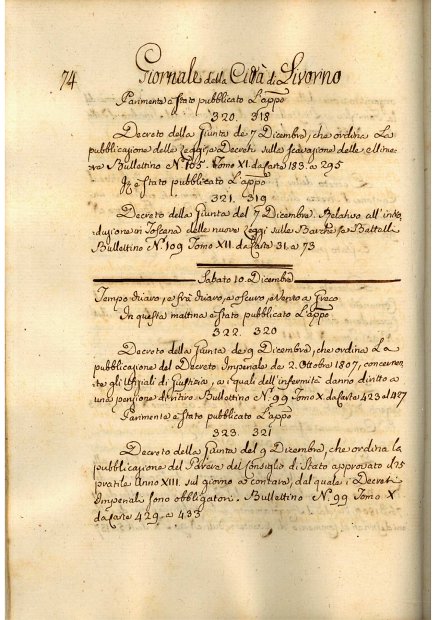 74
Giornale della Città di Livorno
Parimente è stato pubblicato L'appo
320. 318
Decreto della Giunta de 7 Dicembre, che ordina La
pubblicazione delle Leggi, e Decreti sulla scavazione delle Minie
re Bullettino N.º 105. Tomo XI. da Carte 183. a 295
È stato pubblicato L'appo
321. 319
Decreto della Giunta del 7 Dicembre Relativo all'intro
duzione in Toscana delle nuove Leggi sulle Barche, e Battelli
Bullettino N.º 109 Tomo XII. da Carte 31. a 73
Sabato 10. Dicembre
Tempo chiaro, e frà chiaro, e oscuro, e Vento a Greco
In questa mattina è stato pubblicato L'appo
322. 320
Decreto della Giunta de 9 Dicembre, che ordina La
pubblicazione del Decreto Imperiale de 2. Ottobre 1807, concernen
te gli Ufiziali di Giustizia, a' quali dell'infermità danno diritto a
una pensione di ritiro Bullettino N.º 99 Tomo X da Carte 423 al 427
Parimente è stato pubblicato L'appo
323. 321
Decreto della Giunta del 9 Dicembre, che ordina la
pubblicazione del Parere del Consiglio di Stato approvato il 25
pratile Anno XIII. sul giorno a contare, dal quale i Decreti
Imperiali sono obbligatori. Bullettino N.º 99 Tomo X
da Carte 429. a 433